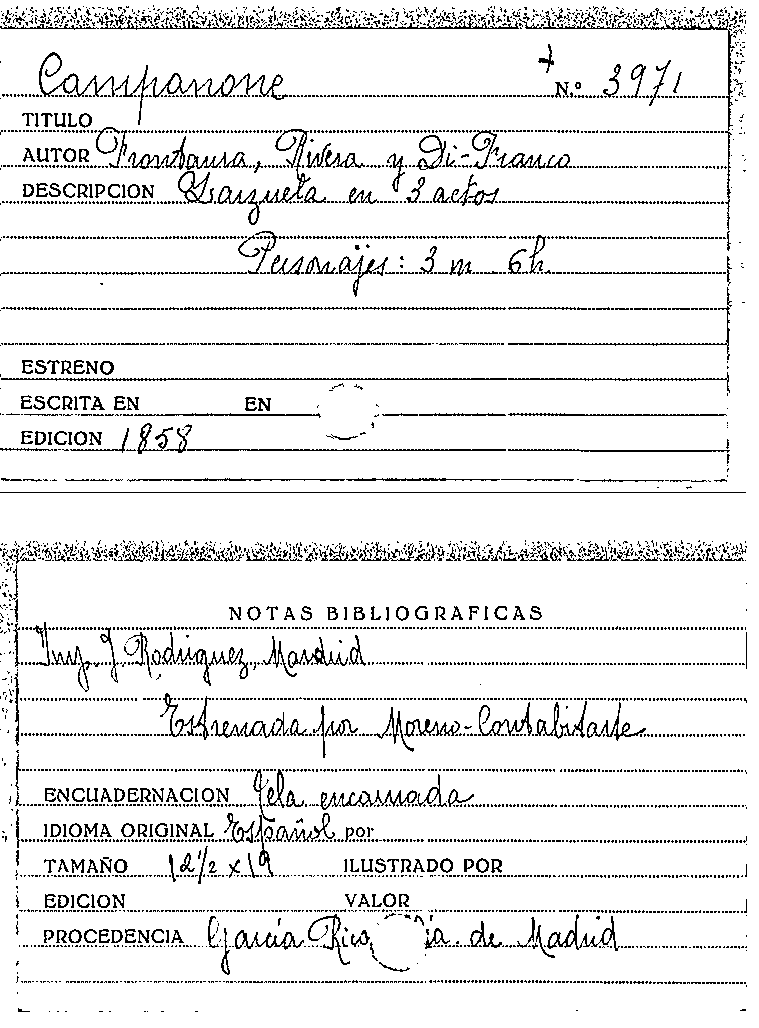 Campanone
N.º 3971
TITULO
AUTOR Frontaura, Rivera y Di-Franco
DESCRIPCION Zarzuela en 3 actos
Personajes: 3 m 6h.
ESTRENO
ESCRITA EN EN
EDICION 1858
NOTAS BIBLIOGRAFICAS
Imp. J. Rodriguez, Madrid
Estrenada por Moreno-
ENCUADERNACION Tela encarnada
IDIOMA ORIGINAL Español por
TAMAÑO 12½ x 19 ILUSTRADO POR
EDICION VALOR
PROCEDENCIA García Rico de Madrid